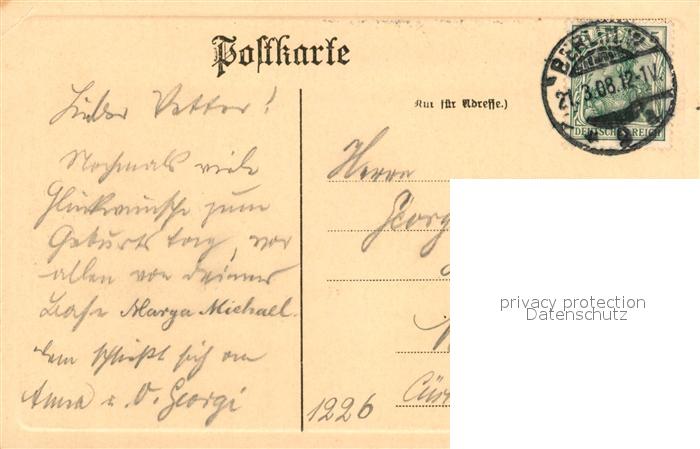 Postkarte
Lieber Vetter!
Nochmals viele
Glückwünsche zum
Geburtstag, vor
allem von deiner
Base Marga Michael.
dem schließt sich an
Anna u. O. Georgi
Nur für Adresse.)
Herrn
Georg
1226
BERLIN
21.3.08.12-1V.
5
DEUTSCHES REICH
privacy protection
Datenschutz